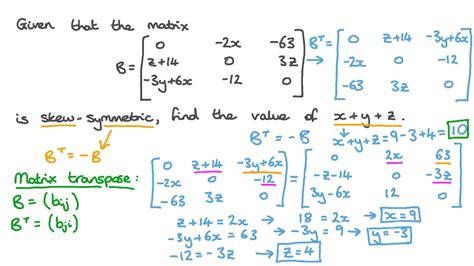 Given that the matrix
B = [ 0 -2x -63 ; z+14 0 3z ; -3y+6x -12 0 ] → Bᵀ = [ 0 z+14 -3y+6x ; -2x 0 -12 ; -63 3z 0 ]
is skew-symmetric, find the value of x+y+z.
Bᵀ = -B
Bᵀ = -B
x+y+z = 9-3+4 = 10
Matrix transpose:
B = (bij)
Bᵀ = (bji)
[ 0 z+14 -3y+6x ; -2x 0 -12 ; -63 3z 0 ] = [ 0 2x 63 ; -z-14 0 -3z ; 3y-6x 12 0 ]
z+14 = 2x → 18 = 2x → x = 9
-3y+6x = 63 → -3y = 9 → y = -3
-12 = -3z → z = 4